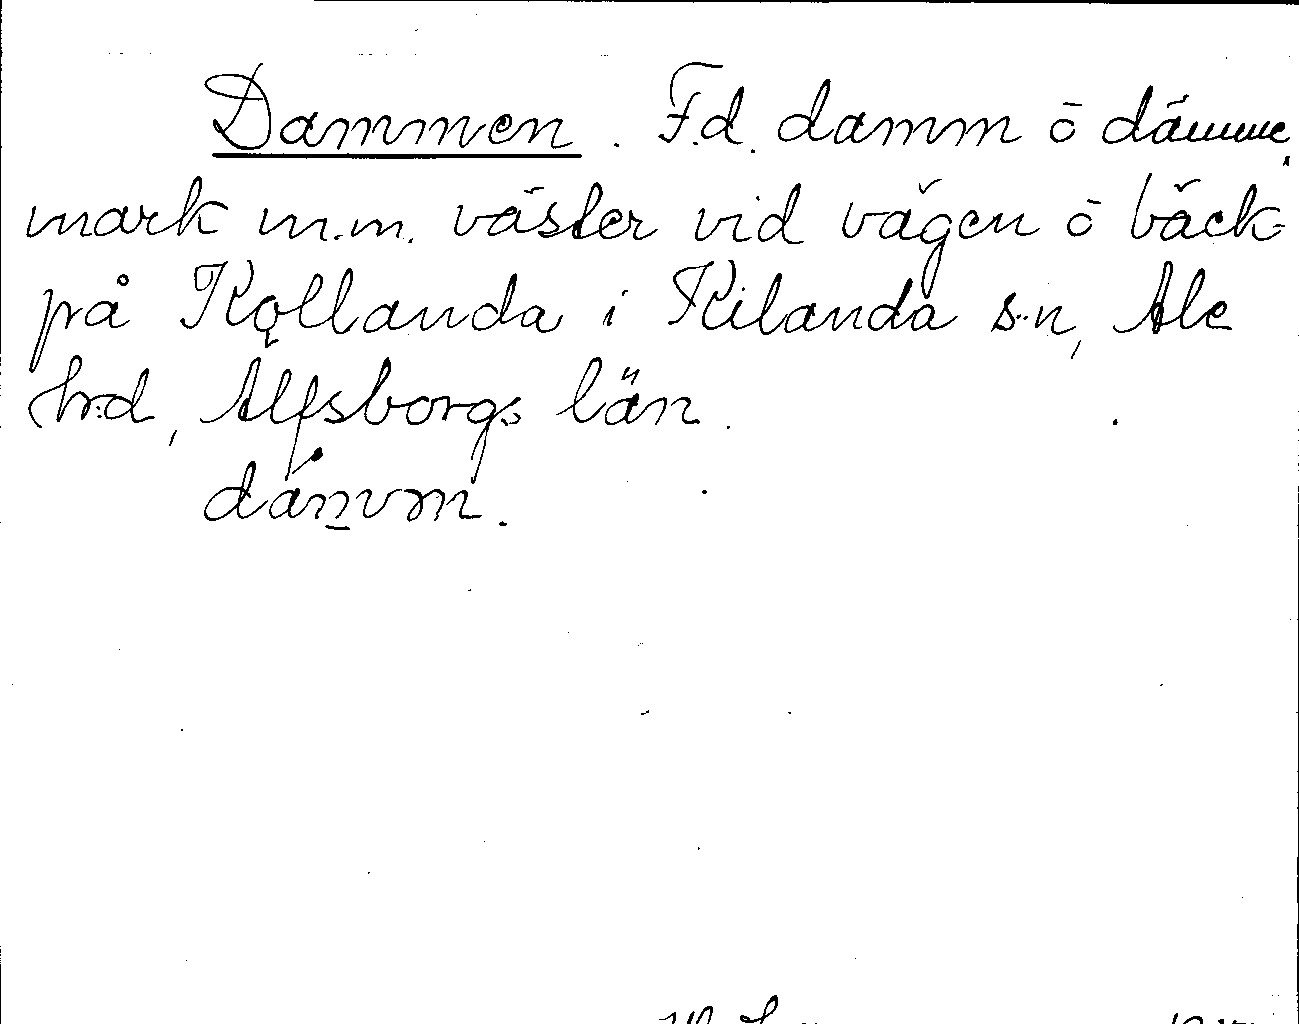 Dammen. F.d. damm ō dämme,
mark m.m. väster vid vägen ō bäck
på Kollanda i Kilanda s:n, Ale
hrd, Alfsborgs län.